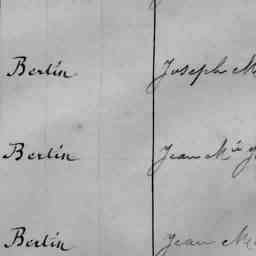 Berlin Joseph M
Berlin Jean Mc
Berlin Jean Mc